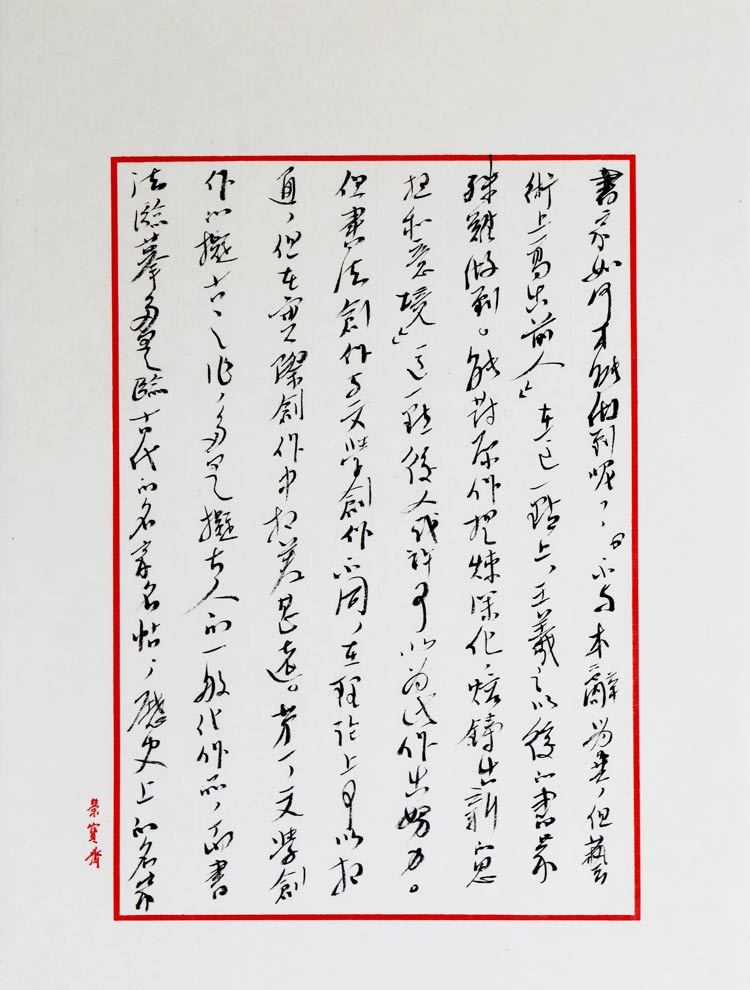 書家如何才能做到呢，「不與本辭為異，但藝
術上高出前人」在這一點上，王羲之以後的書家
殊難做到。能對原作提煉深化，熔鑄出新的思
想和意境」這一點後人或許可以為此作出努力。
但書法創作與文學創作不同，在理論上可以相
通，但在實際創作中相差甚遠。第一，文學創
作的擬古之作，多是擬古人的一般代作品，而書
法臨摹多是臨古代的名家名帖，歷史上的名家
榮寶齋